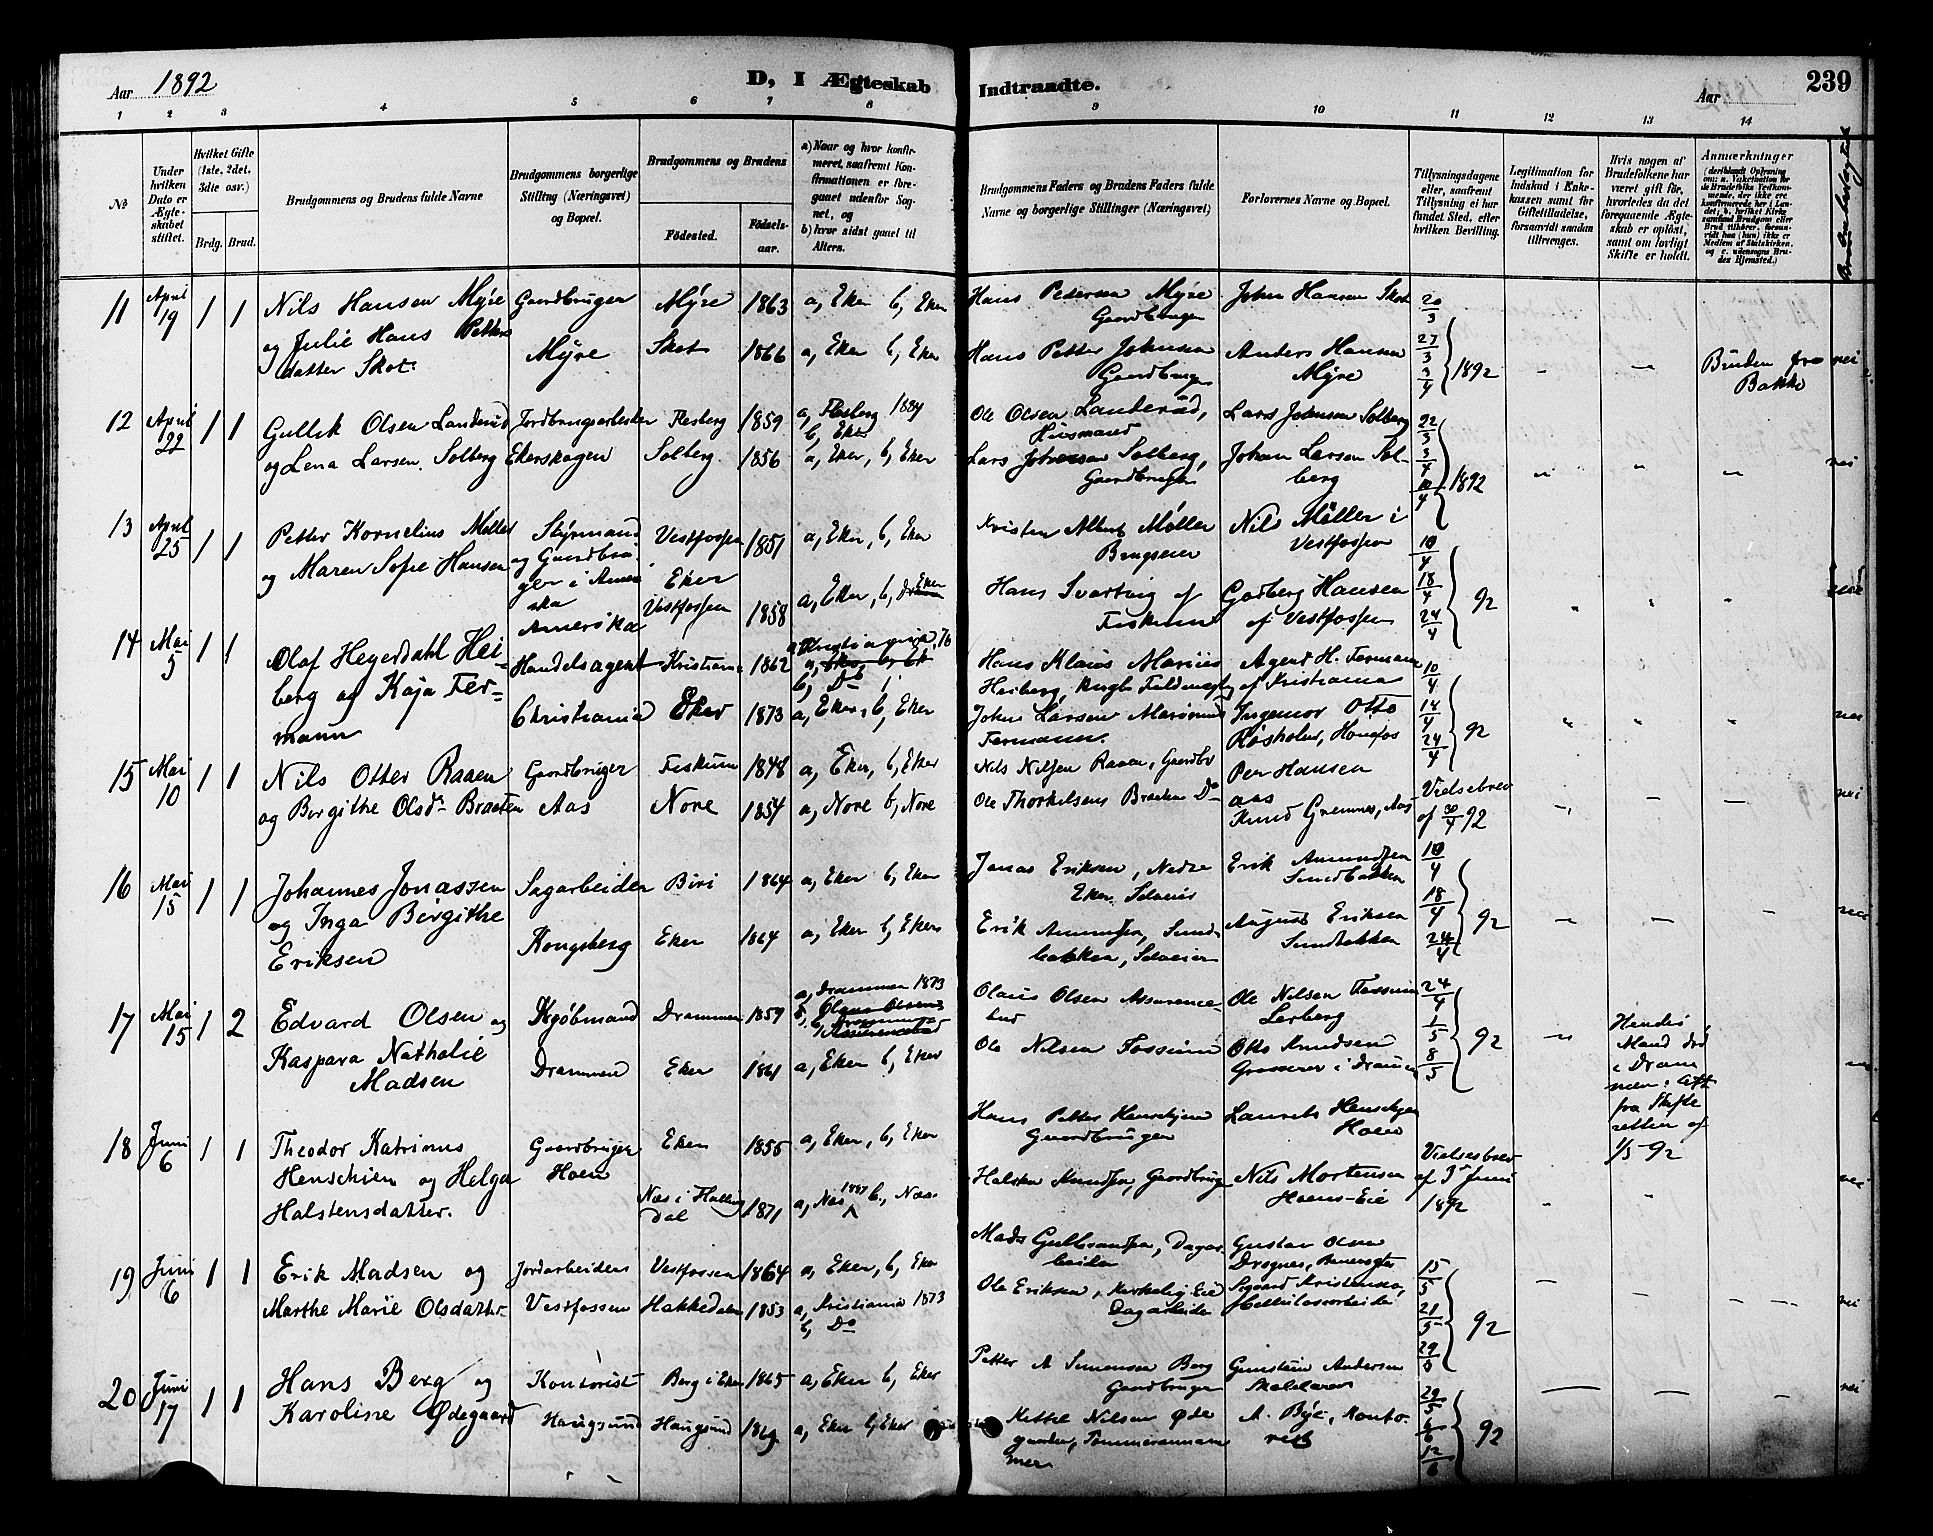 Aar 1892
D, I Ægteskab
Indtraadte.
Aar 1892
239
1 2 3 4 5 6 7 8 9 10 11 12 13 14
No
Under hvilken Dato er Ægteskabet stiftet.
Hvilket Gifte (1ste, 2det, 3die osv.)
Brdg. Brud.
Brudgommens og Brudens fulde Navne
Brudgommens borgerlige Stilling (Næringsvei) og Bopæl.
Brudgommens og Brudens
Födested.
Födselsaar.
a) Naar og hvor konfirmeret, saafremt Konfirmationen er foregaaet udenfor Sognet, og
b) hvor sidst gaaet til Alters.
Brudgommens Faders og Brudens Faders fulde Navne og borgerlige Stillinger (Næringsvei)
Forlovernes Navne og Bopæl.
Tillysningsdagene eller, saafremt Tillysning ei har fundet Sted, efter hvilken Bevilling.
Legitimation for Indskud i Enkekassen samt for Giftetilladelse, forsaavidt saadan tiltrænges.
Hvis nogen af Brudefolkene har været gift för, hvorledes da det foregaaende Ægteskab er oplöst, samt om lovligt Skifte er holdt.
Anmærkninger
11 April 19 1 1 Nils Hansen Myre
og Julie Hans Petters
datter Skot.
Gaardbruger
Myre
Myre 1863 a, Eker b, Eker
Skot 1866 a, Eker b, Eker
Hans Pedersen Myre
Gaardbruger
Hans Petter Johnsen
Gaardbruger
John Hansen Skot
Anders Hansen
Myre
20/3 27/3 3/4 1892
Bruden fra
Bakke
nei
12 April 22 1 1 Gullik Olsen Landerud
og Lena Larsen Solberg
Jordbrugsarbeider
Ekerskogen
Flesberg 1859 a, Flesberg 1884
b, Eker
Solberg 1856 a, Eker, b, Eker
Ole Olsen Landerud,
Husmand
Lars Johnsen Solberg,
Gaardbruger
Lars Johnsen Solberg
Johan Larsen Sol-
berg
1892
nei
13 April 25 1 1 Petter Kornelius Møller
og Maren Sofie Hansen
Styrmand
og Gaardbru
ger i Ameri
ka
Amerika
Vestfossen 1851 a, Eker, b, Eker
Eker
Vestfossen 1858 a, Eker, b, Eker
Kristen Albert Møller
Brugseier
Hans Svarting af
Fiskum
Nils Møller i
Vestfossen
Godberg Hansen
af Vestfossen
10/4 18/4 24/4 92
14 Mai 5 1 1 Olaf Heyerdahl Hei-
berg og Kaja Fer-
mann
Handelsagent
Christiania
Kristiania 1862
Eker 1873 a, Eker, b, Eker
Hans Klaus Marius
Heiberg,
John Larsen
Fermann.
Agent H. Fermann
af Kristiania
Ingeniør Otto
Røsholm, Hønefos
92
nei
15 Mai 10 1 1 Nils Otter Raaen
og Bergithe Olsdr Braaten
Gaardbruger
Aas
Fiskum 1848 a, Eker, b, Eker
Nore 1854 a, Nore b, Nore
Nils Nilsen Raaen, Gaardbr
Ole Thorkelsen Braaten Do
Per Hansen
Aas
Knud Grennes, Aas
Vielsebrev
af 30/4 92
nei
16 Mai 15 1 1 Johannes Jonassen
og Inga Birgithe
Eriksen
Sagarbeider
Kongsberg
Biri 1864 a, Eker b, Eker
Eker 1864 a, Eker b, Eker
Jonas Eriksen, Nedre
Eker, Selveier
Erik Amundsen, Sund-
bakken, Selveier
Erik Amundsen
Sundbakken
August Eriksen
Sundbakken
10/4 18/4 24/4 92
nei
17 Mai 15 1 2 Edvard Olsen og
Kaspara Nathalie
Madsen
Kjøbmand
Drammen
Drammen 1859 a, Drammen 1873
Eker 1861 a, Eker b, Eker
Olaus Olsen Assurance
bud
Ole Nilsen Fossum
Ole Nilsen Fossum
Lerberg
Otto Knudsen
Grosserer i Drammen
24/4 1/5 8/5 92
Hendes
Mand død
i Dram
men. Att
fra Skifte
retten af
1/5 92
18 Juni 6 1 1 Theodor Katrinus
Henschien og Helga
Halstensdatter.
Gaardbruger
Hoen
Eker 1856 a, Eker, b, Eker
Næs i Halling
dal 1871 a, Næs 1887 b, Næs
Hans Petter Henschien
Gaardbruger
Halsten Knudsen, Gaardbruger
Laurits Henschien
Hoen
Nils Mortensen
Hoens-Eie
Vielsesbrev
af 3 Juni
1892
nei
19 Juni 6 1 1 Erik Madsen og
Marthe Marie Olsdatter
Jordarbeider
Vestfossen
Vestfossen 1864 a, Eker, b, Eker
Hakkedalen 1853 a, Kristiania 1873
b, Do
Mads Gulbrandsen, Dagar
beider
Ole Eriksen, Kirkelig Eie
Dagarbeider
Gustav Olsen
Sigvard Kristensen,
Cellulosearbeider
15/5 21/5 92
nei
20 Juni 17 1 1 Hans Berg og
Karoline Ødegaard
Kontorist
Haugsund
Berg i Eker 1865 a, Eker b, Eker
Haugsund a, Eker b, Eker
Petter A Simensen Berg
Gaardbruger
Kettil Nilsen Øde
gaarden, Tømmermann
Gunstein Andersen
A. Bye, Konto-
rist
29/5 6/6 12/6 92
nei